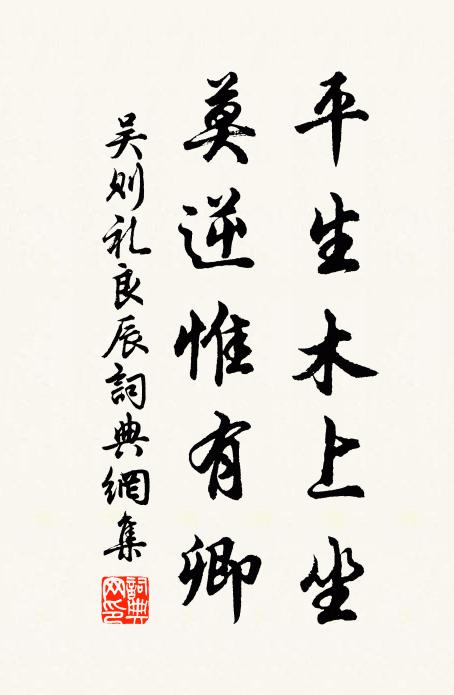 平生木上坐
莫逆惟有卿
吴则礼良辰詞典網集
詞典網印